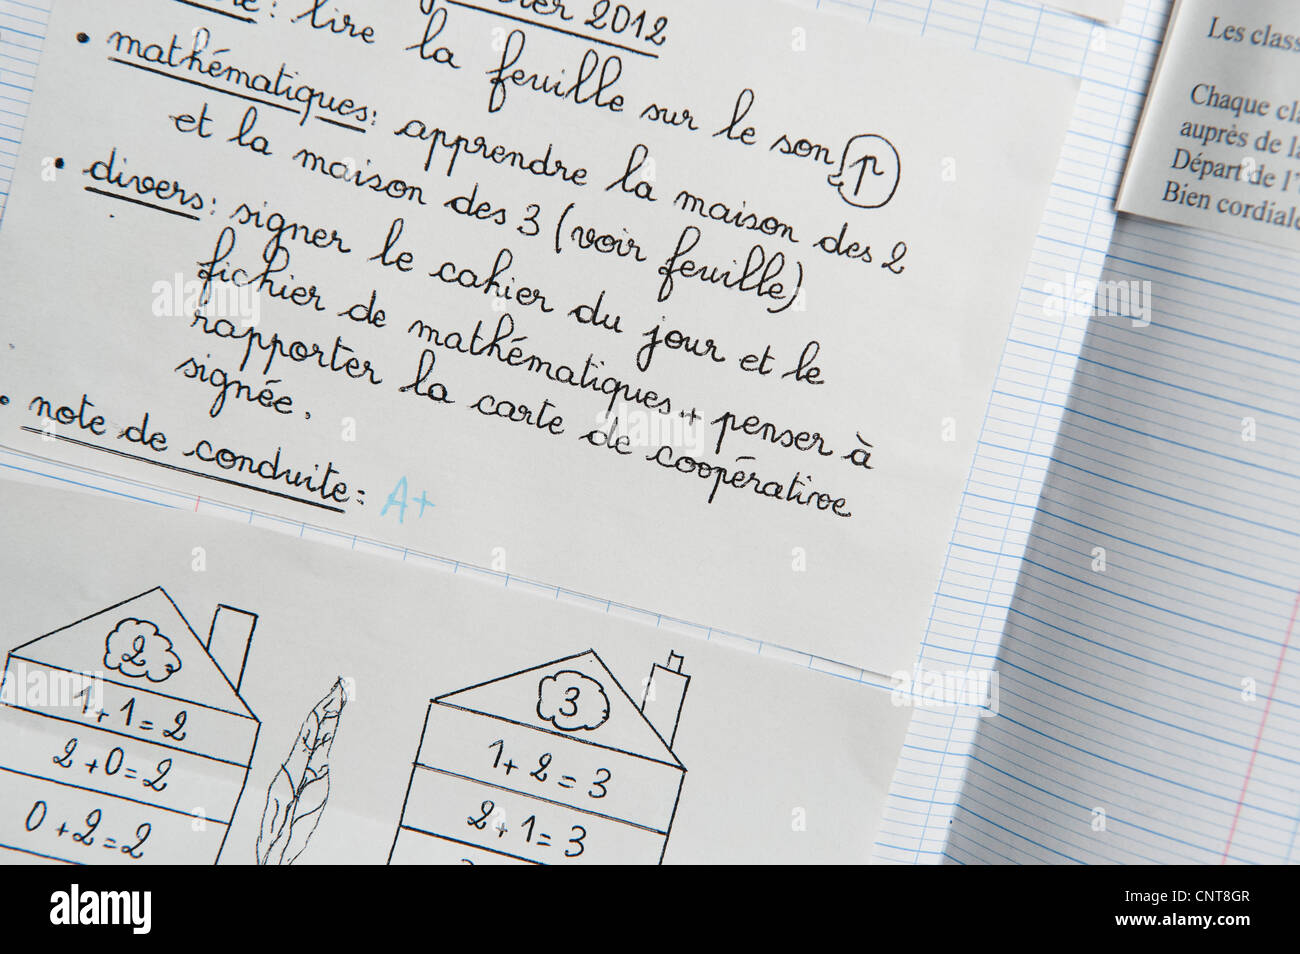 2012
: lire la feuille sur le son p
• mathématiques : apprendre la maison des 2
et la maison des 3 (voir feuille)
• divers : signer le cahier du jour et le
fichier de mathématiques + penser à
rapporter la carte de coopérative
signée.
• note de conduite : A+
2
1+1=2
2+0=2
0+2=2
3
1+2=3
2+1=3
Les class
Chaque cla
auprès de la
Départ de l'
Bien cordiale
alamy
Image ID: CNT8GR
www.alamy.com